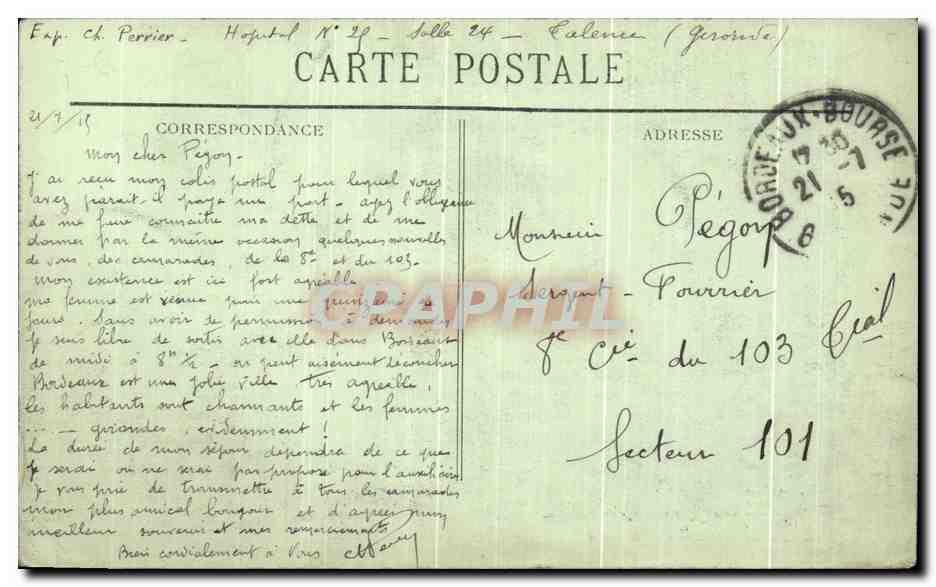 Exp. Ch. Perrier - Hopital N° 25 - Salle 24 - Talence (Gironde)
CARTE POSTALE
21/7/15
CORRESPONDANCE
mon cher Pégory.
J'ai reçu mon colis postal pour lequel vous
avez parait-il payé un port - ayez l'obligeance
de me faire connaitre ma dette et de me
donner par la même occasion quelques nouvelles
de vous, des camarades, de la 8e et du 103.
Mon existence est ici fort agréable.
ma femme est venue pour une quinzaine de
jours. Sans avoir de permission à demander
Je suis libre de sortir avec elle dans Bordeaux
de midi à 8h 1/2 - on peut aisément découcher
Bordeaux est une jolie ville très agréable,
les habitants sont charmants et les femmes
... - girondes, évidemment !
La durée de mon séjour dépendra de ce que
Je serai ou ne serai pas proposé pour l'auxiliaire
Je vous prie de transmettre à tous les camarades
mon plus amical bonjour et d'agréer mon
meilleur souvenir et mes remerciements
Bien cordialement à Vous
ADRESSE
BORDEAUX-BOURSE
17 30
21 - 7
15
Monsieur Pégory
Sergent - Fourrier
8e Cie du 103 Cial
Secteur 101
CPAPHIL